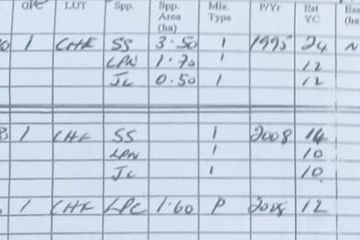 LUT Spp. Spp. Area (ha) Mix. Type P/Yr Est YC
1 CHF SS 3.50 1 1995 24 N
LPN 1.70 1 12
JL 0.50 1 12
1 CHF SS 1 2008 14
LPN 1 10
JL 1 10
1 CHF LPC 1.60 P 12